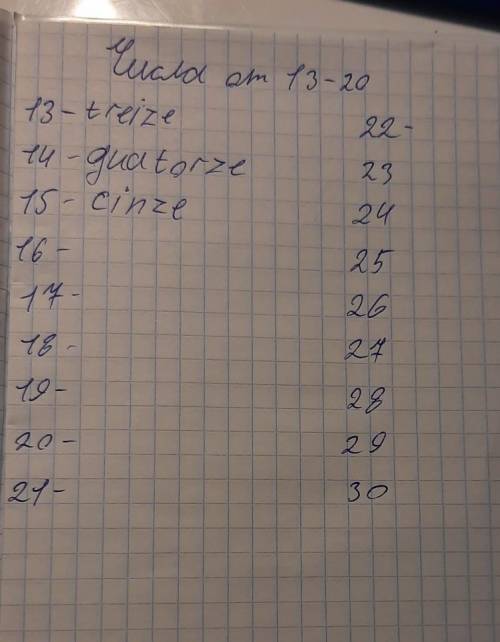 Числа от 13-20
13- treize
14- quatorze
15- cinze
16-
17-
18-
19-
20-
21-
22-
23
24
25
26
27
28
29
30